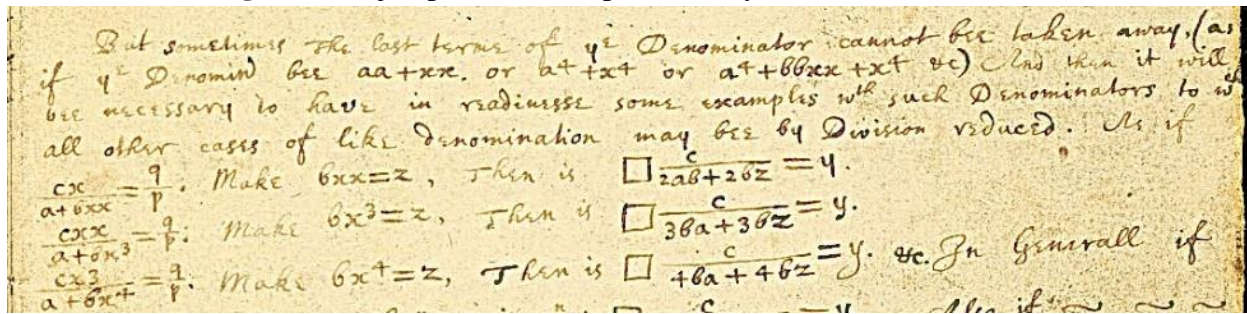 But sometimes the last terme of yᵉ Denominator cannot bee taken away, (as
if yᵉ Denomin̄ bee aa+xx. or a⁴+x⁴ or a⁴+bbxx+x⁴ &c) And then it will
bee necessary to have in readinesse some examples wᵗʰ such Denominators to wᶜʰ
all other cases of like denomination may bee by Division reduced. As if
cx/(a+bxx) = q/p. Make bxx=z, Then is □ c/(2ab+2bz) = y.
cxx/(a+bx³) = q/p: Make bx³=z, Then is □ c/(3ba+3bz) = y.
cx3/(a+bx⁴) = q/p. Make bx⁴=z, Then is □ c/(4ba+4bz) = y. &c. In Generall if